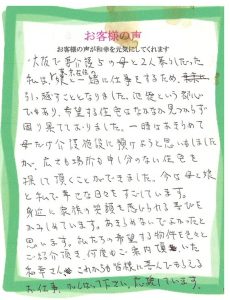 お客様の声
お客様の声が和幸を元気にしてくれます
大阪で要介護5の母と2人暮らしだった
私は、東京在住の娘と一緒に仕事をするため、
引っ越すことになりました。
でもあり、希望する住宅はなかなか見つからず
困り果てておりました。一時はあきらめて
母だけ介護施設に預けようと思いもしました
が、広さも場所も申し分のない住宅を
探して頂くことができました。今は母と娘
と私で幸せな日々をすごしています。
身近に家族の笑顔を感じられる喜びを
かみしめています。あきらめないでよかったと
思います。私たちの希望する物件を色々と
ご紹介頂き、何度もご案内頂いた
和幸さん これからも皆様に喜んでもらえる
お仕事、がんばって下さい。応援しています。